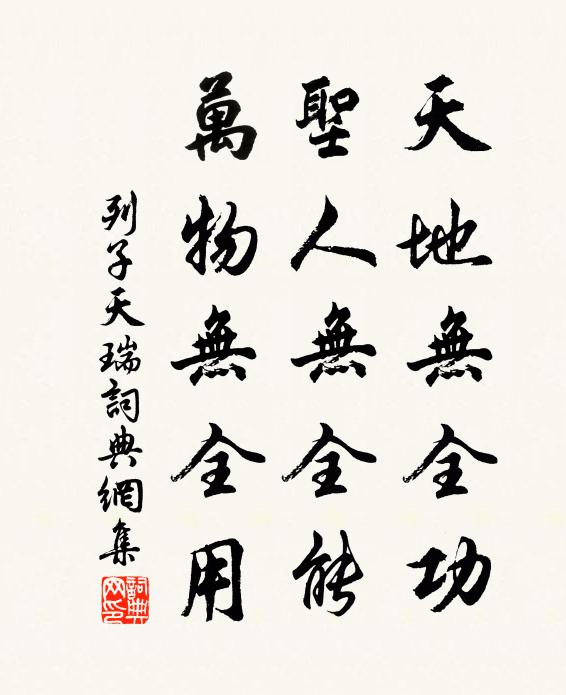 天地無全功
聖人無全能
萬物無全用
列子天瑞詞典網集
詞典網印